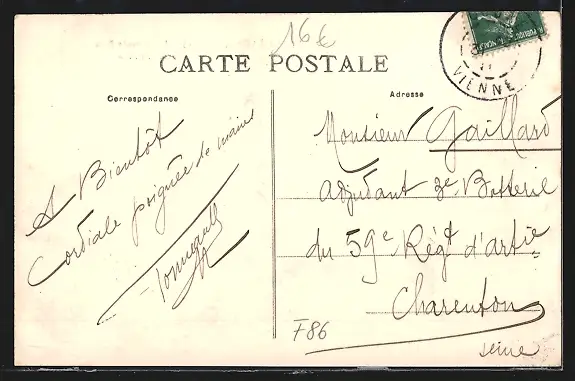 16€
CARTE POSTALE
Correspondance
Adresse
VIENNE
A Bientôt
Cordiale poignée de mains
Monsieur Gaillard
Adjudant 3e Batterie
du 59e Régt d'artie
Charenton
Seine
F86